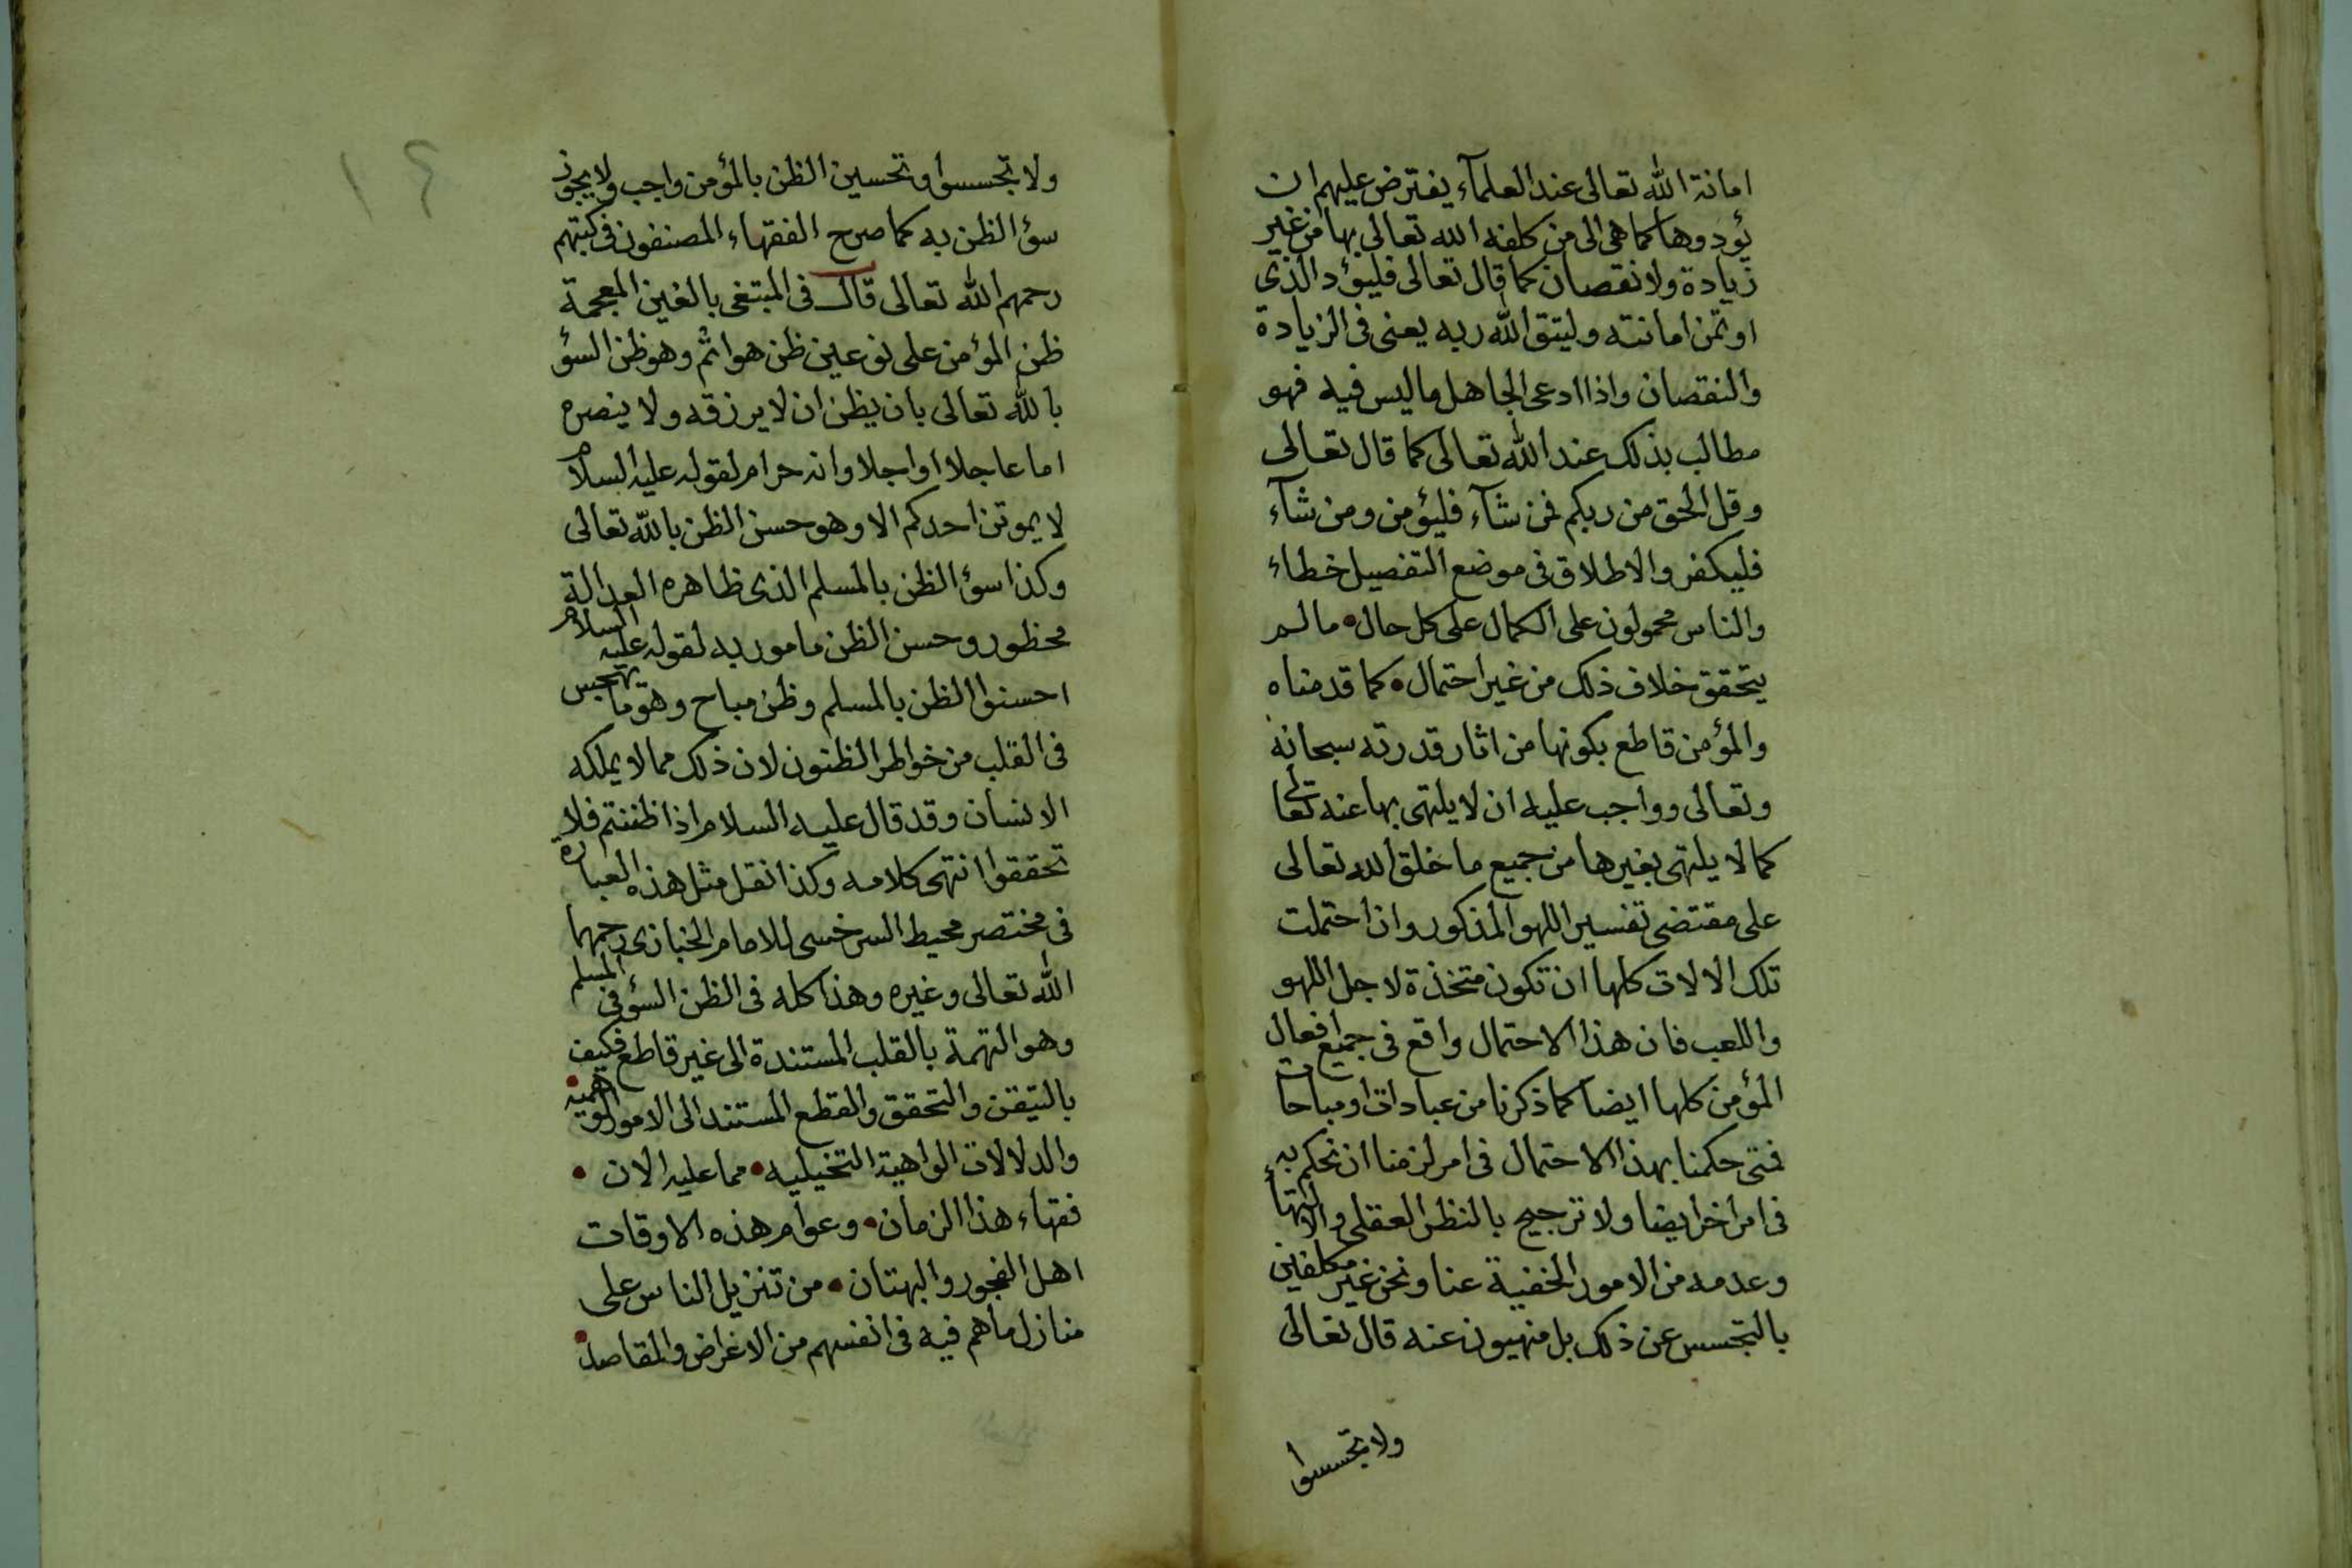 امانة الله تعالى عند العلمآء يفترض عليهم ان
يؤدوها كما هى الى من كلفه الله تعالى بها من غير
زيادة ولا نقصان كما قال تعالى فليؤد الذى
اوتمن امانته وليتق الله ربه يعنى فى الزيادة
والنقصان واذا ادعى الجاهل ما ليس فيه فهو
مطالب بذلك عند الله تعالى كما قال تعالى
وقل الحق من ربكم فمن شآء فليؤمن ومن شآء
فليكفر والاطلاق فى موضع التفصيل خطاء
والناس محمولون على الكمال على كل حال • ما لم
يتحقق خلاف ذلك من غير احتمال • كما قدمناه
والمؤمن قاطع بكونها من اثار قدرته سبحانه
وتعالى وواجب عليه ان لا يلتهى بها عنه تعالى
كما لا يلتهى بغيرها من جميع ما خلق الله تعالى
على مقتضى تفسير اللهو المذكور وان احتملت
تلك الالات كلها ان تكون متخذة لاجل اللهو
واللعب فان هذا الاحتمال واقع فى جميع افعال
المؤمن كلها ايضا كما ذكرنا من عبادات او مباحات
فمتى حكمنا بهذا الاحتمال فى امر لزمنا ان نحكم به
فى امر اخر ايضا ولا ترجيح بالنظر العقلى والالتهاء
وعدمه من الامور الخفية عنا ونحن غير مكلفين
بالتجسس عن ذلك بل منهيون عنه قال تعالى
ولا تجسسوا
١٤
ولا تجسسوا وتحسين الظن بالمؤمن واجب ولا يجوز
سؤ الظن به كما صرح الفقهاء المصنفون فى كتبهم
رحمهم الله تعالى قال فى المبتغى بالغين المعجمة
ظن المؤمن على نوعين ظن هو اثم وهو ظن السؤ
بالله تعالى بان يظن ان لا يرزقه ولا ينصره
اما عاجلا او اجلا وانه حرام لقوله عليه السلام
لا يموتن احدكم الا وهو حسن الظن بالله تعالى
وكذا سؤ الظن بالمسلم الذى ظاهره العدالة
محظور وحسن الظن مامور به لقوله عليه السلام
احسنوا الظن بالمسلم وظن مباح وهو ما يهجس
فى القلب من خواطر الظنون لان ذلك مما لا يملكه
الانسان وقد قال عليه السلام اذا ظننتم فلا
تحققوا انتهى كلامه وكذا نقل مثل هذه العبارة
فى مختصر محيط السرخسى للامام الخبازى رحمهما
الله تعالى وغيره وهذا كله فى الظن السؤ فى المسلم
وهو التهمة بالقلب المستندة الى غير قاطع فكيف
بالتيقن والتحقق والقطع المستند الى الامور الوهمية •
والدلالات الواهية التخيليه • مما عليه الان •
فقهاء هذا الزمان • وعوام هذه الاوقات
اهل الفجور والبهتان • من تنزيل الناس على
منازل ما هم فيه فى انفسهم من الاغراض والمقاصد •